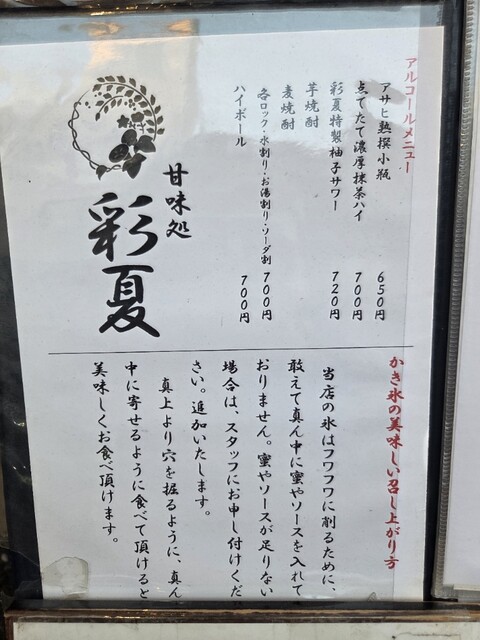 アルコールメニュー
アサヒ熟撰小瓶 650円
点てたて濃厚抹茶ハイ 700円
彩夏特製柚子サワー 720円
芋焼酎
麦焼酎
各ロック・水割り・お湯割り・ソーダ割 700円
ハイボール 700円
甘味処
彩夏
かき氷の美味しい召し上がり方
当店の氷はフワフワに削るために、
敢えて真ん中に蜜やソースを入れて
おりません。蜜やソースが足りない
場合は、スタッフにお申し付けくだ
さい。追加いたします。
真上より穴を掘るように、真ん
中に寄せるように食べて頂けると
美味しくお食べ頂けます。